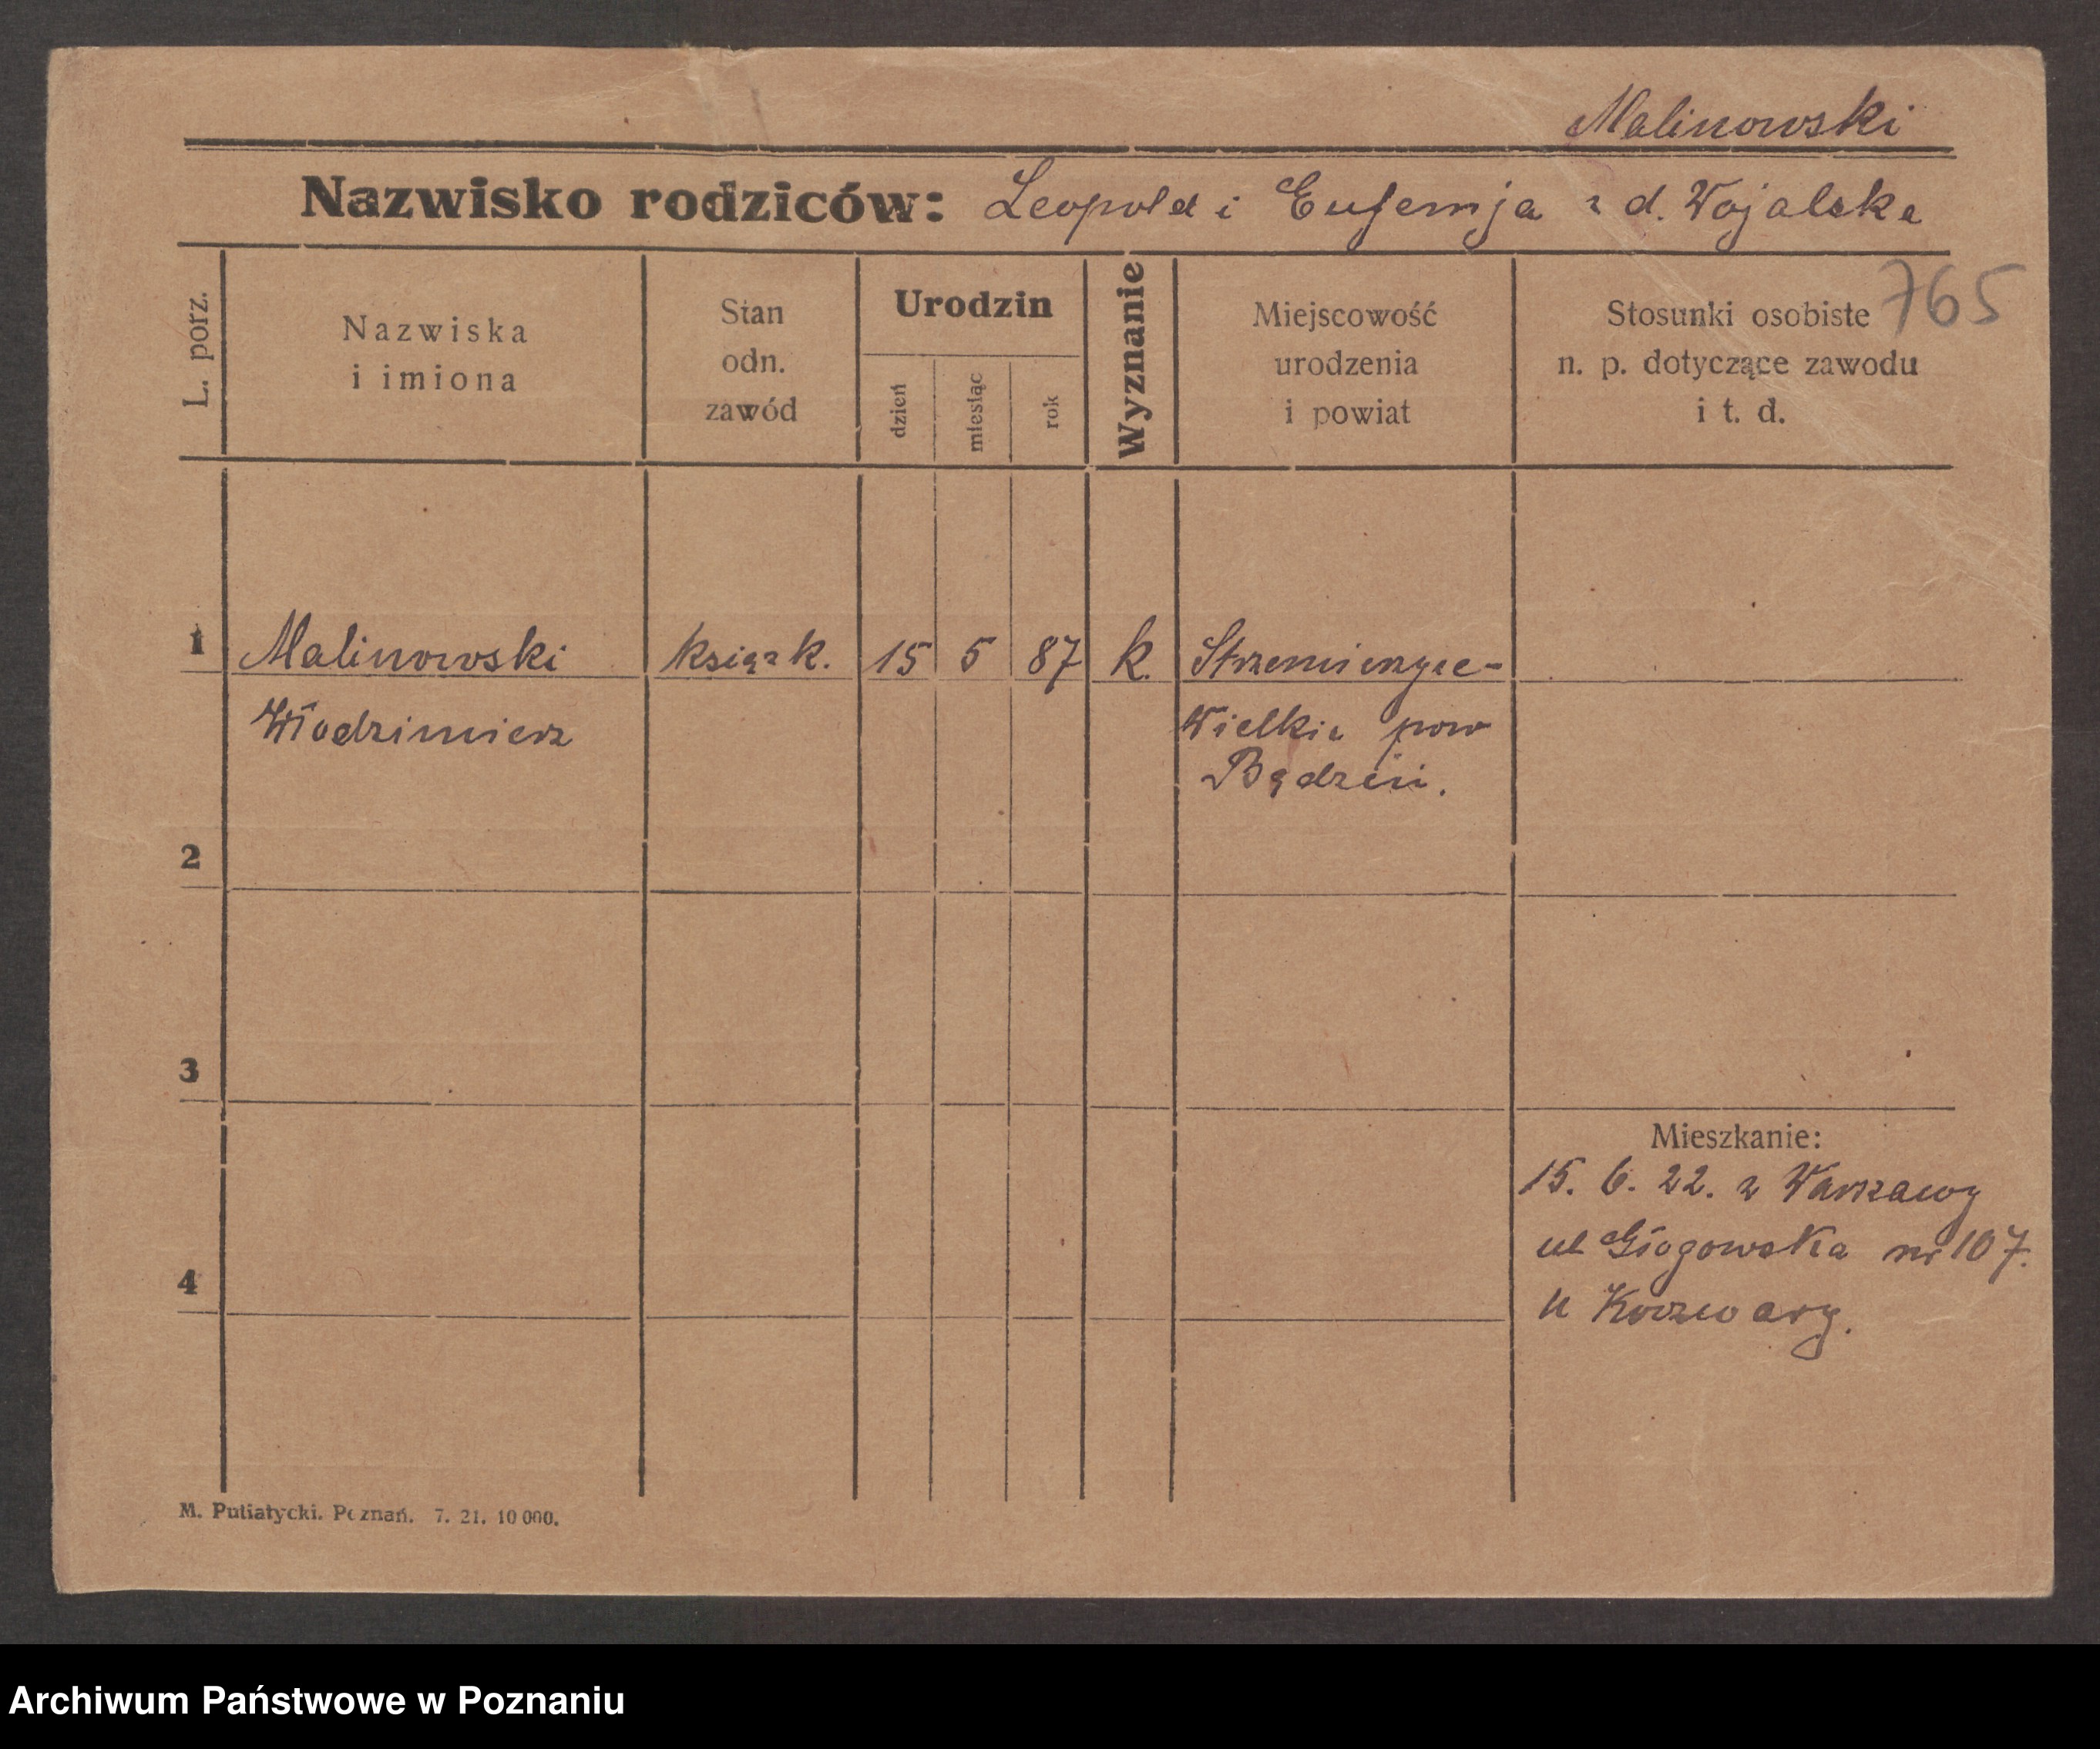 Malinowski
Nazwisko rodziców: Leopold i Eufemja z d. Wojalska
765
L. porz.
Nazwiska
i imiona
Stan
odn.
zawód
Urodzin
dzień
miesiąc
rok
Wyznanie
Miejscowość
urodzenia
i powiat
Stosunki osobiste
n. p. dotyczące zawodu
i t. d.
1 Malinowski książk. 15 5 87 k. Strzemieszyce-
Włodzimierz Wielkie pow
Będzin.
2
3
Mieszkanie:
15. 6. 22. z Warszawy
ul Głogowska nr 107.
4
u
M. Putiatycki. Poznań. 7. 21. 10 000.
Archiwum Państwowe w Poznaniu